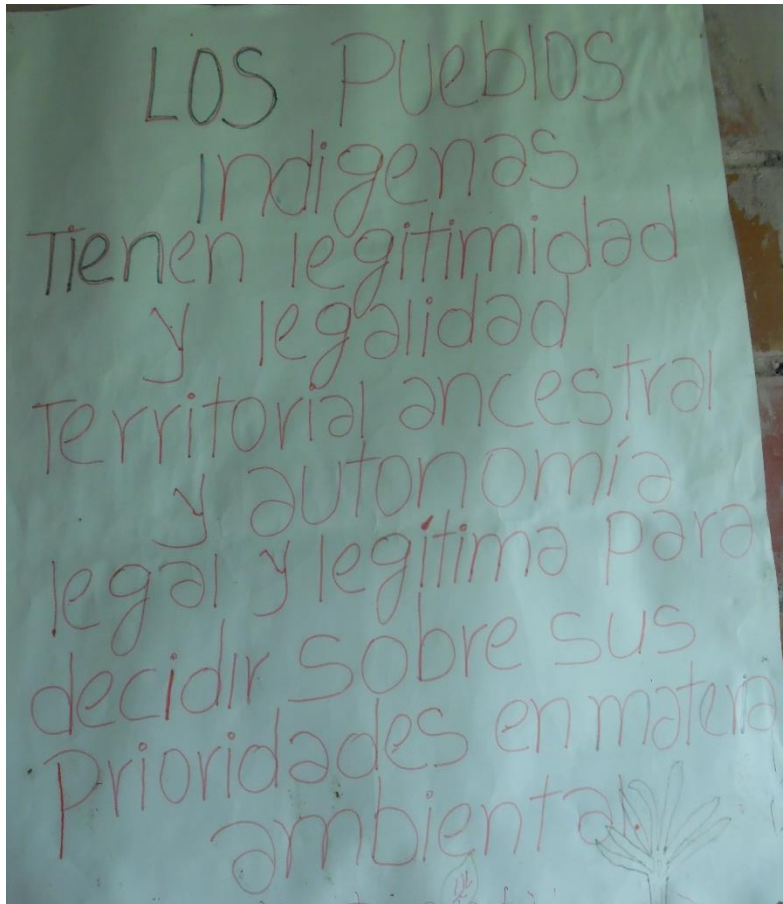 LOS PUeblOS
indigenas
Tienen legitimidad
y legalidad
Territorial ancestral
y autonomía
legal y legítima para
decidir sobre sus
Prioridades en materia
ambiental.